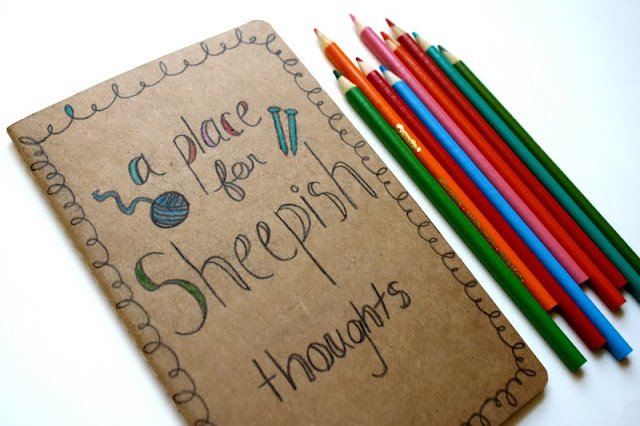 a place
for
Sheepish
thoughts